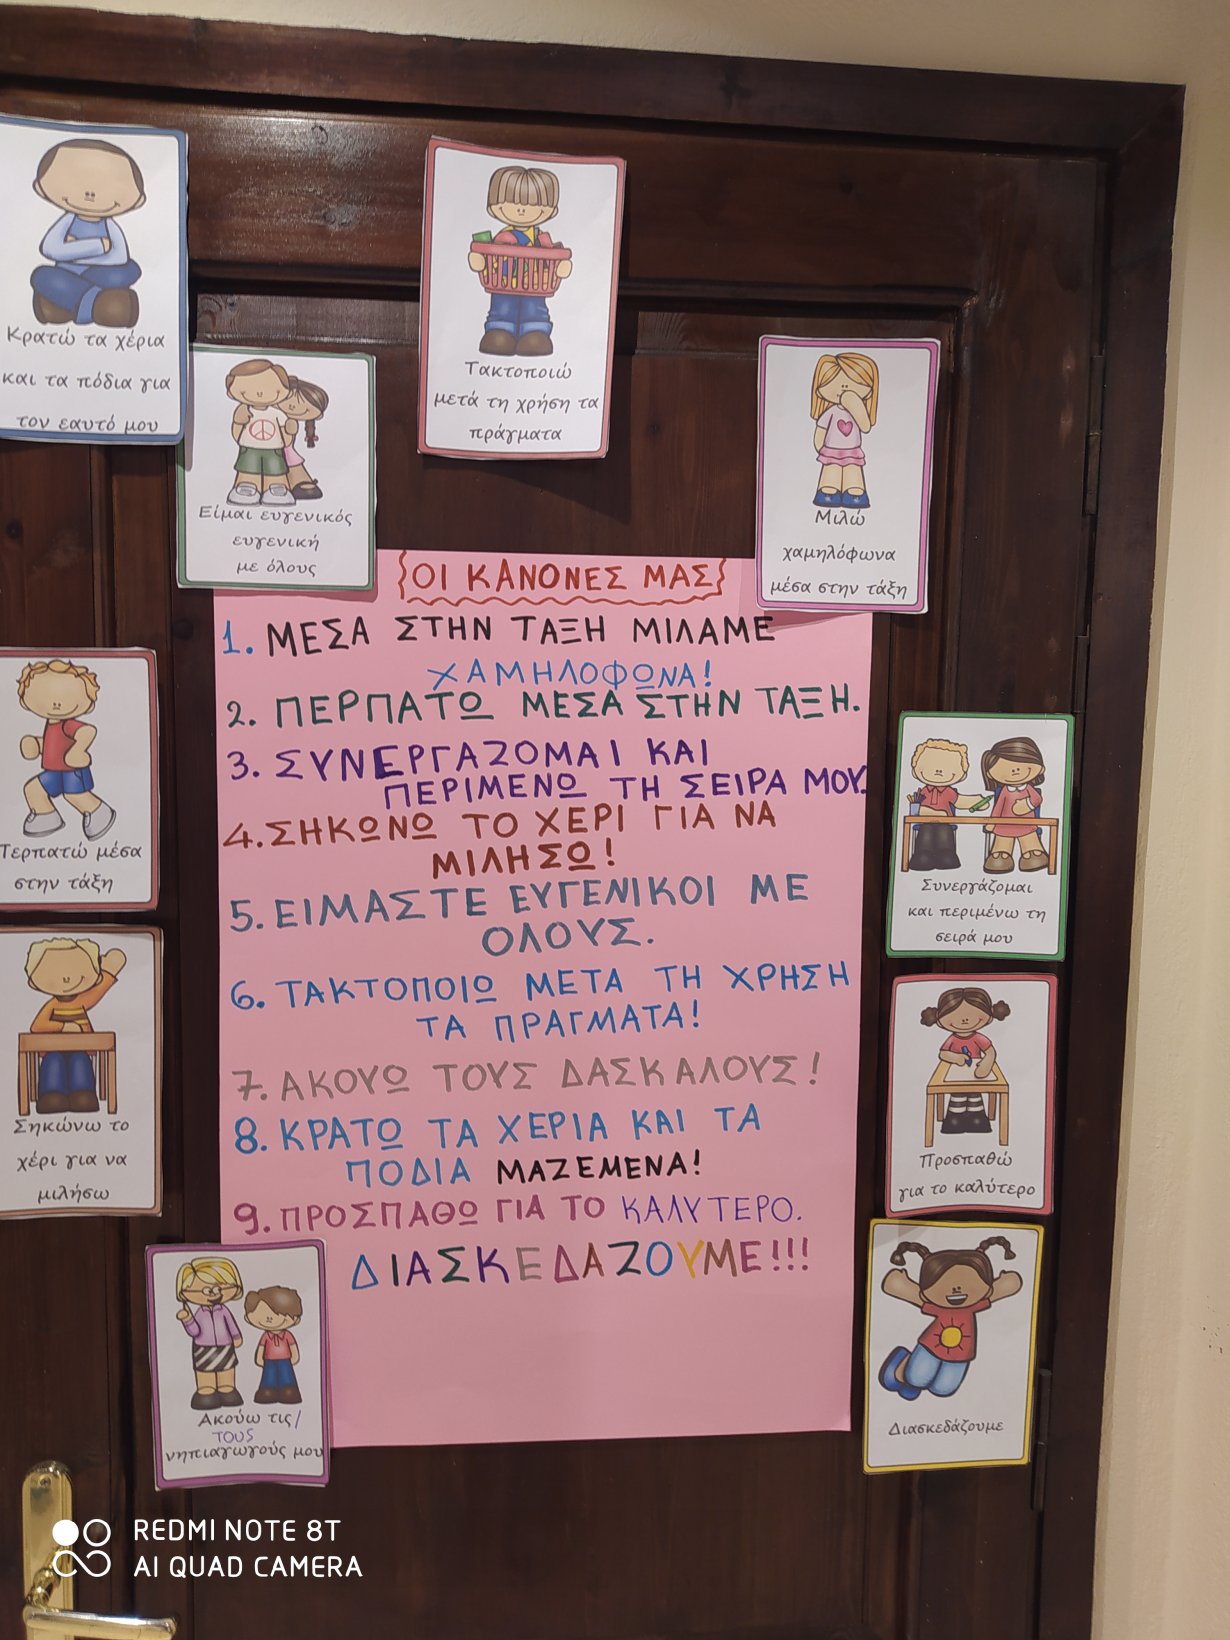 Κρατώ τα χέρια
και τα πόδια για
τον εαυτό μου
Είμαι ευγενικός
ευγενική
με όλους
Τακτοποιώ
μετά τη χρήση τα
πράγματα
Μιλώ
χαμηλόφωνα
μέσα στην τάξη
ΟΙ ΚΑΝΟΝΕΣ ΜΑΣ
1. ΜΕΣΑ ΣΤΗΝ ΤΑΞΗ ΜΙΛΑΜΕ
ΧΑΜΗΛΟΦΩΝΑ!
2. ΠΕΡΠΑΤΩ ΜΕΣΑ ΣΤΗΝ ΤΑΞΗ.
3. ΣΥΝΕΡΓΑΖΟΜΑΙ ΚΑΙ
ΠΕΡΙΜΕΝΩ ΤΗ ΣΕΙΡΑ ΜΟΥ.
4. ΣΗΚΩΝΩ ΤΟ ΧΕΡΙ ΓΙΑ ΝΑ
ΜΙΛΗΣΩ!
5. ΕΙΜΑΣΤΕ ΕΥΓΕΝΙΚΟΙ ΜΕ
ΟΛΟΥΣ.
6. ΤΑΚΤΟΠΟΙΩ ΜΕΤΑ ΤΗ ΧΡΗΣΗ
ΤΑ ΠΡΑΓΜΑΤΑ!
7. ΑΚΟΥΩ ΤΟΥΣ ΔΑΣΚΑΛΟΥΣ!
8. ΚΡΑΤΩ ΤΑ ΧΕΡΙΑ ΚΑΙ ΤΑ
ΠΟΔΙΑ ΜΑΖΕΜΕΝΑ!
9. ΠΡΟΣΠΑΘΩ ΓΙΑ ΤΟ ΚΑΛΥΤΕΡΟ.
ΔΙΑΣΚΕΔΑΖΟΥΜΕ!!!
Περπατώ μέσα
στην τάξη
Σηκώνω το
χέρι για να
μιλήσω
Ακούω τις/
τους
νηπιαγωγούς μου
Συνεργάζομαι
και περιμένω τη
σειρά μου
Προσπαθώ
για το καλύτερο
Διασκεδάζουμε
REDMI NOTE 8T
AI QUAD CAMERA